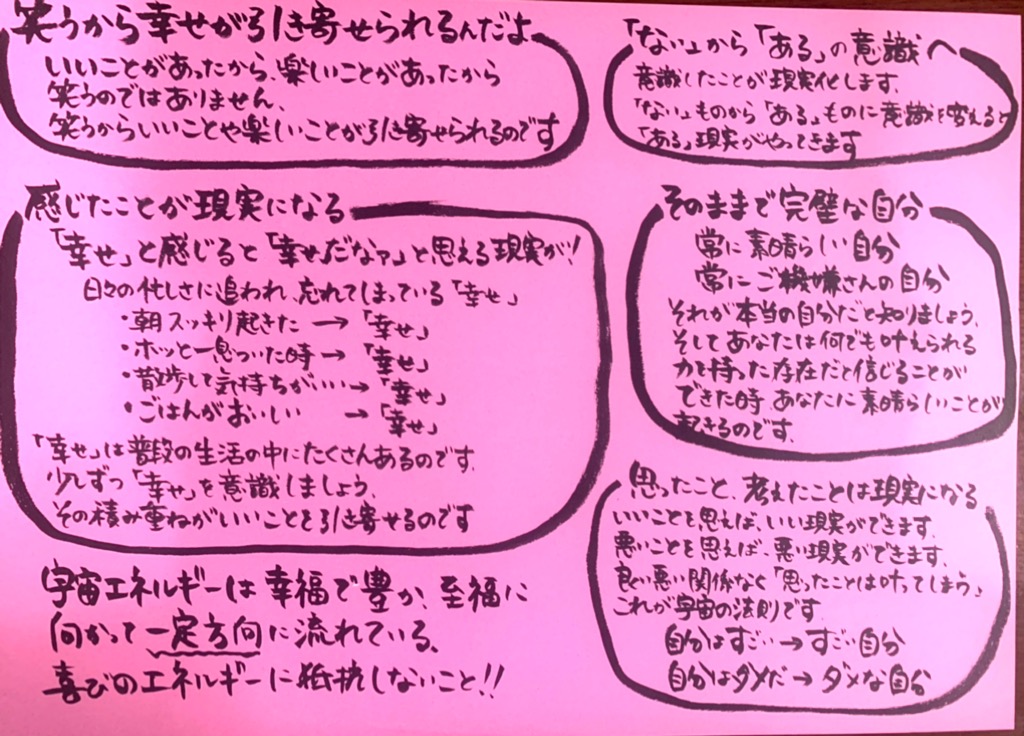 笑うから幸せが引き寄せられるんだよ
いいことがあったから、楽しいことがあったから
笑うのではありません、
笑うからいいことや楽しいことが引き寄せられるのです
感じたことが現実になる
「幸せ」と感じると「幸せだなァ」と思える現実が!
日々の忙しさに追われ、忘れてしまっている「幸せ」
・朝スッキリ起きた → 「幸せ」
・ホッと一息ついた時→ 「幸せ」
・散歩して気持ちがいい→「幸せ」
・ごはんがおいしい → 「幸せ」
「幸せ」は普段の生活の中にたくさんあるのです、
少しずつ「幸せ」を意識しましょう、
その積み重ねがいいことを引き寄せるのです
宇宙エネルギーは幸福で豊か、至福に
向かって一定方向に流れている、
喜びのエネルギーに抵抗しないこと!!
「ない」から「ある」の意識へ
意識したことが現実化します、
「ない」ものから「ある」ものに意識を変えると
「ある」現実がやってきます
そのままで完璧な自分
常に素晴らしい自分
常にご機嫌さんの自分
それが本当の自分だと知りましょう、
そしてあなたは何でも叶えられる
力を持った存在だと信じることが
できた時、あなたに素晴らしいことが
起きるのです、
思ったこと、考えたことは現実になる
いいことを思えば、いい現実ができます、
悪いことを思えば、悪い現実ができます、
良い悪い関係なく「思ったことは叶ってしまう」
これが宇宙の法則です
自分はすごい→すごい自分
自分はダメだ→ダメな自分